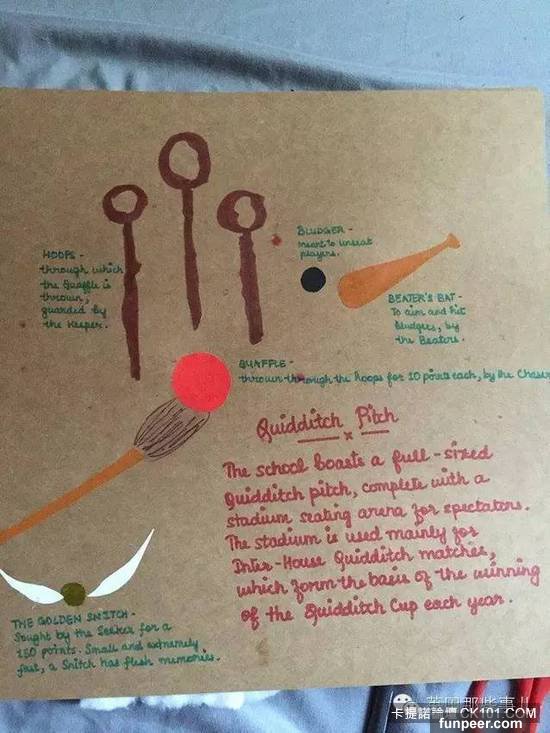 HOOPS -
through which
the Quaffle is
thrown,
guarded by
the Keeper.
BLUDGER -
meant to unseat
players.
BEATER'S BAT -
To aim and hit
Bludgers, by
the Beaters.
QUAFFLE -
thrown through the hoops for 10 points each, by the Chaser
Quidditch Pitch
x
The school boasts a full-sized
Quidditch pitch, complete with a
stadium seating arena for spectators.
The stadium is used mainly for
Inter-House Quidditch matches,
which form the basis of the winning
of the Quidditch Cup each year.
THE GOLDEN SNITCH -
Sought by the Seeker for a
150 points. Small and extremely
fast, a Snitch has flesh memories.
英国那些事儿
卡提諾論壇 CK101.COM
funpeer.com